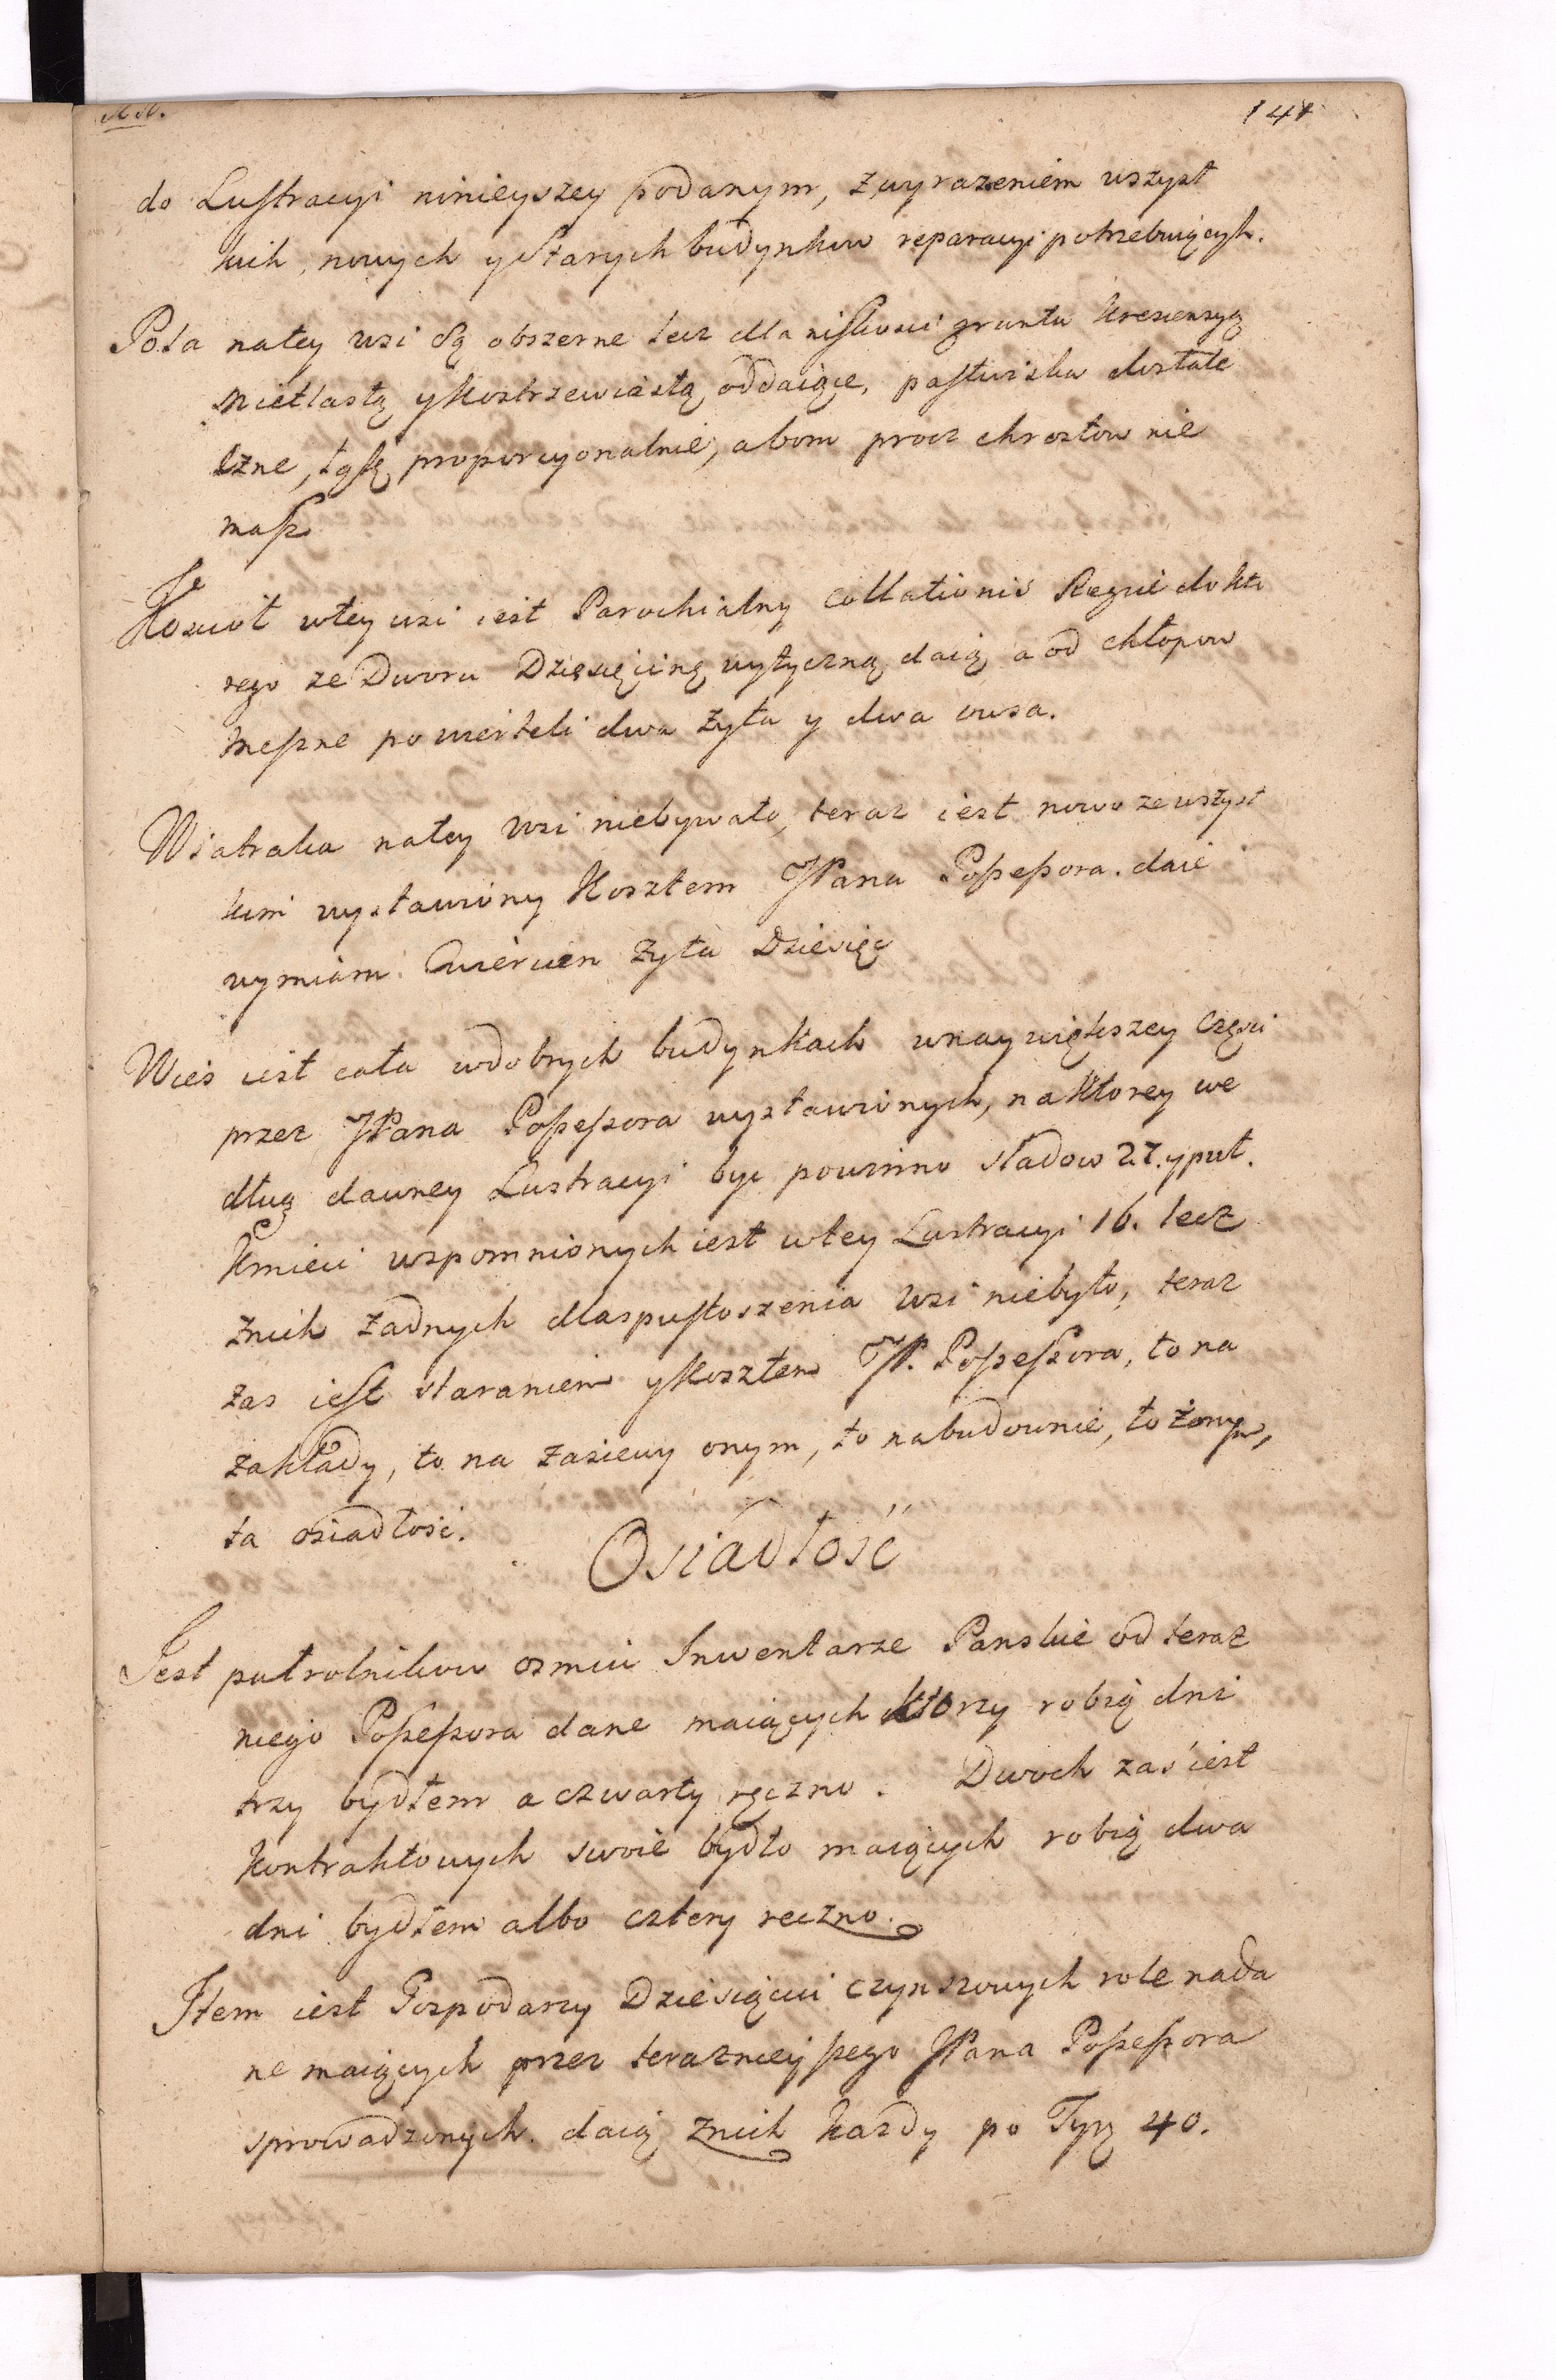 141
do Lustracyi ninieyszey podanym, z wyrazeniem wszyst
kich, nowych y starych budynkow reparacyi potrzebuiących.
Pola na tey wsi są obszerne lecz dla niskosci gruntu krescensyą
mietlastą y kostrzewiastą oddaiące, pastwiska dostate
czne, łąki proporcyonalnie, a borow procz chrostow nie
masz
Koscioł w tey wsi iest Parochialny Collationis Regiae do kto
rego ze Dworu Dziesięcinę wytyczną daią a od chłopow
meszne po wierteli dwa żyta y dwa owsa.
Wiatraka na tey wsi niebywało, teraz iest nowo ze wszyst
kim wystawiony kosztem JPana Possessora. daie
wymiaru Cwiercien żyta Dziesięc
Wies iest cała w dobrych budynkach w naywiększey częsci
przez JPana Possessora wystawionych, na ktorey we
dług dawney Lustracyi byc powinno sladow 27. y puł.
Kmieci wspomnionych iest w tey Lustracyi 16. lecz
z nich żadnych dla spustoszenia wsi niebyło, teraz
zas iest staraniem y kosztem JP. Possessora, to na
zakłady, to na zasiewy onym, to na budownie, to
ta osiadłosc.
Osiadłość
Jest pułrolnikow osmiu Inwentarze Panskie od teraz
niego Possessora dane maiących ktorzy robią dni
trzy bydłem a czwarty ręczno. Dwoch zaś iest
kontraktowych swoie bydło maiących robią dwa
dni bydłem albo cztery reczno.
Item iest Gospodarzy Dziesiąciu czynszowych role nada
ne maiących przez teraznieyszego JPana Possessora
sprowadzonych. daią z nich kazdy po Tynf 40.